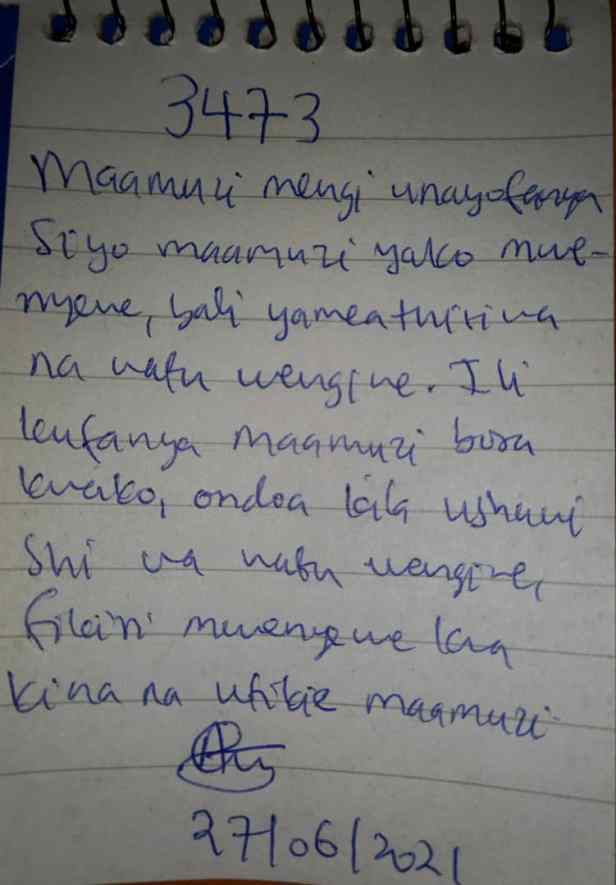 3473
Maamuzi mengi unayofanya
Siyo maamuzi yako mwe-
nyewe, bali yameathiriwa
na watu wengine. Ili
kufanya maamuzi bora
kwako, ondoa kila ushawi
shi wa watu wengine,
fikiri mwenyewe kwa
kina na ufikie maamuzi.
27/06/2021